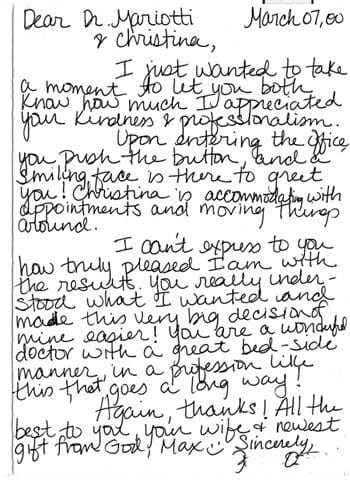 Dear Dr. Mariotti March 07, 00
& Christina,
I just wanted to take
a moment to let you both
know how much I appreciated
your kindness & professionalism.
Upon entering the office,
you push the button, and a
smiling face is there to greet
you! Christina is accommodating with
appointments and moving things
around.
I can't express to you
how truly pleased I am with
the results. You really under-
stood what I wanted and
made this very big decision of
mine easier! You are a wonderful
doctor with a great bed-side
manner, in a profession like
this, that goes a long way!
Again, thanks! All the
best to you, your wife & newest
gift from God, Max Sincerely,